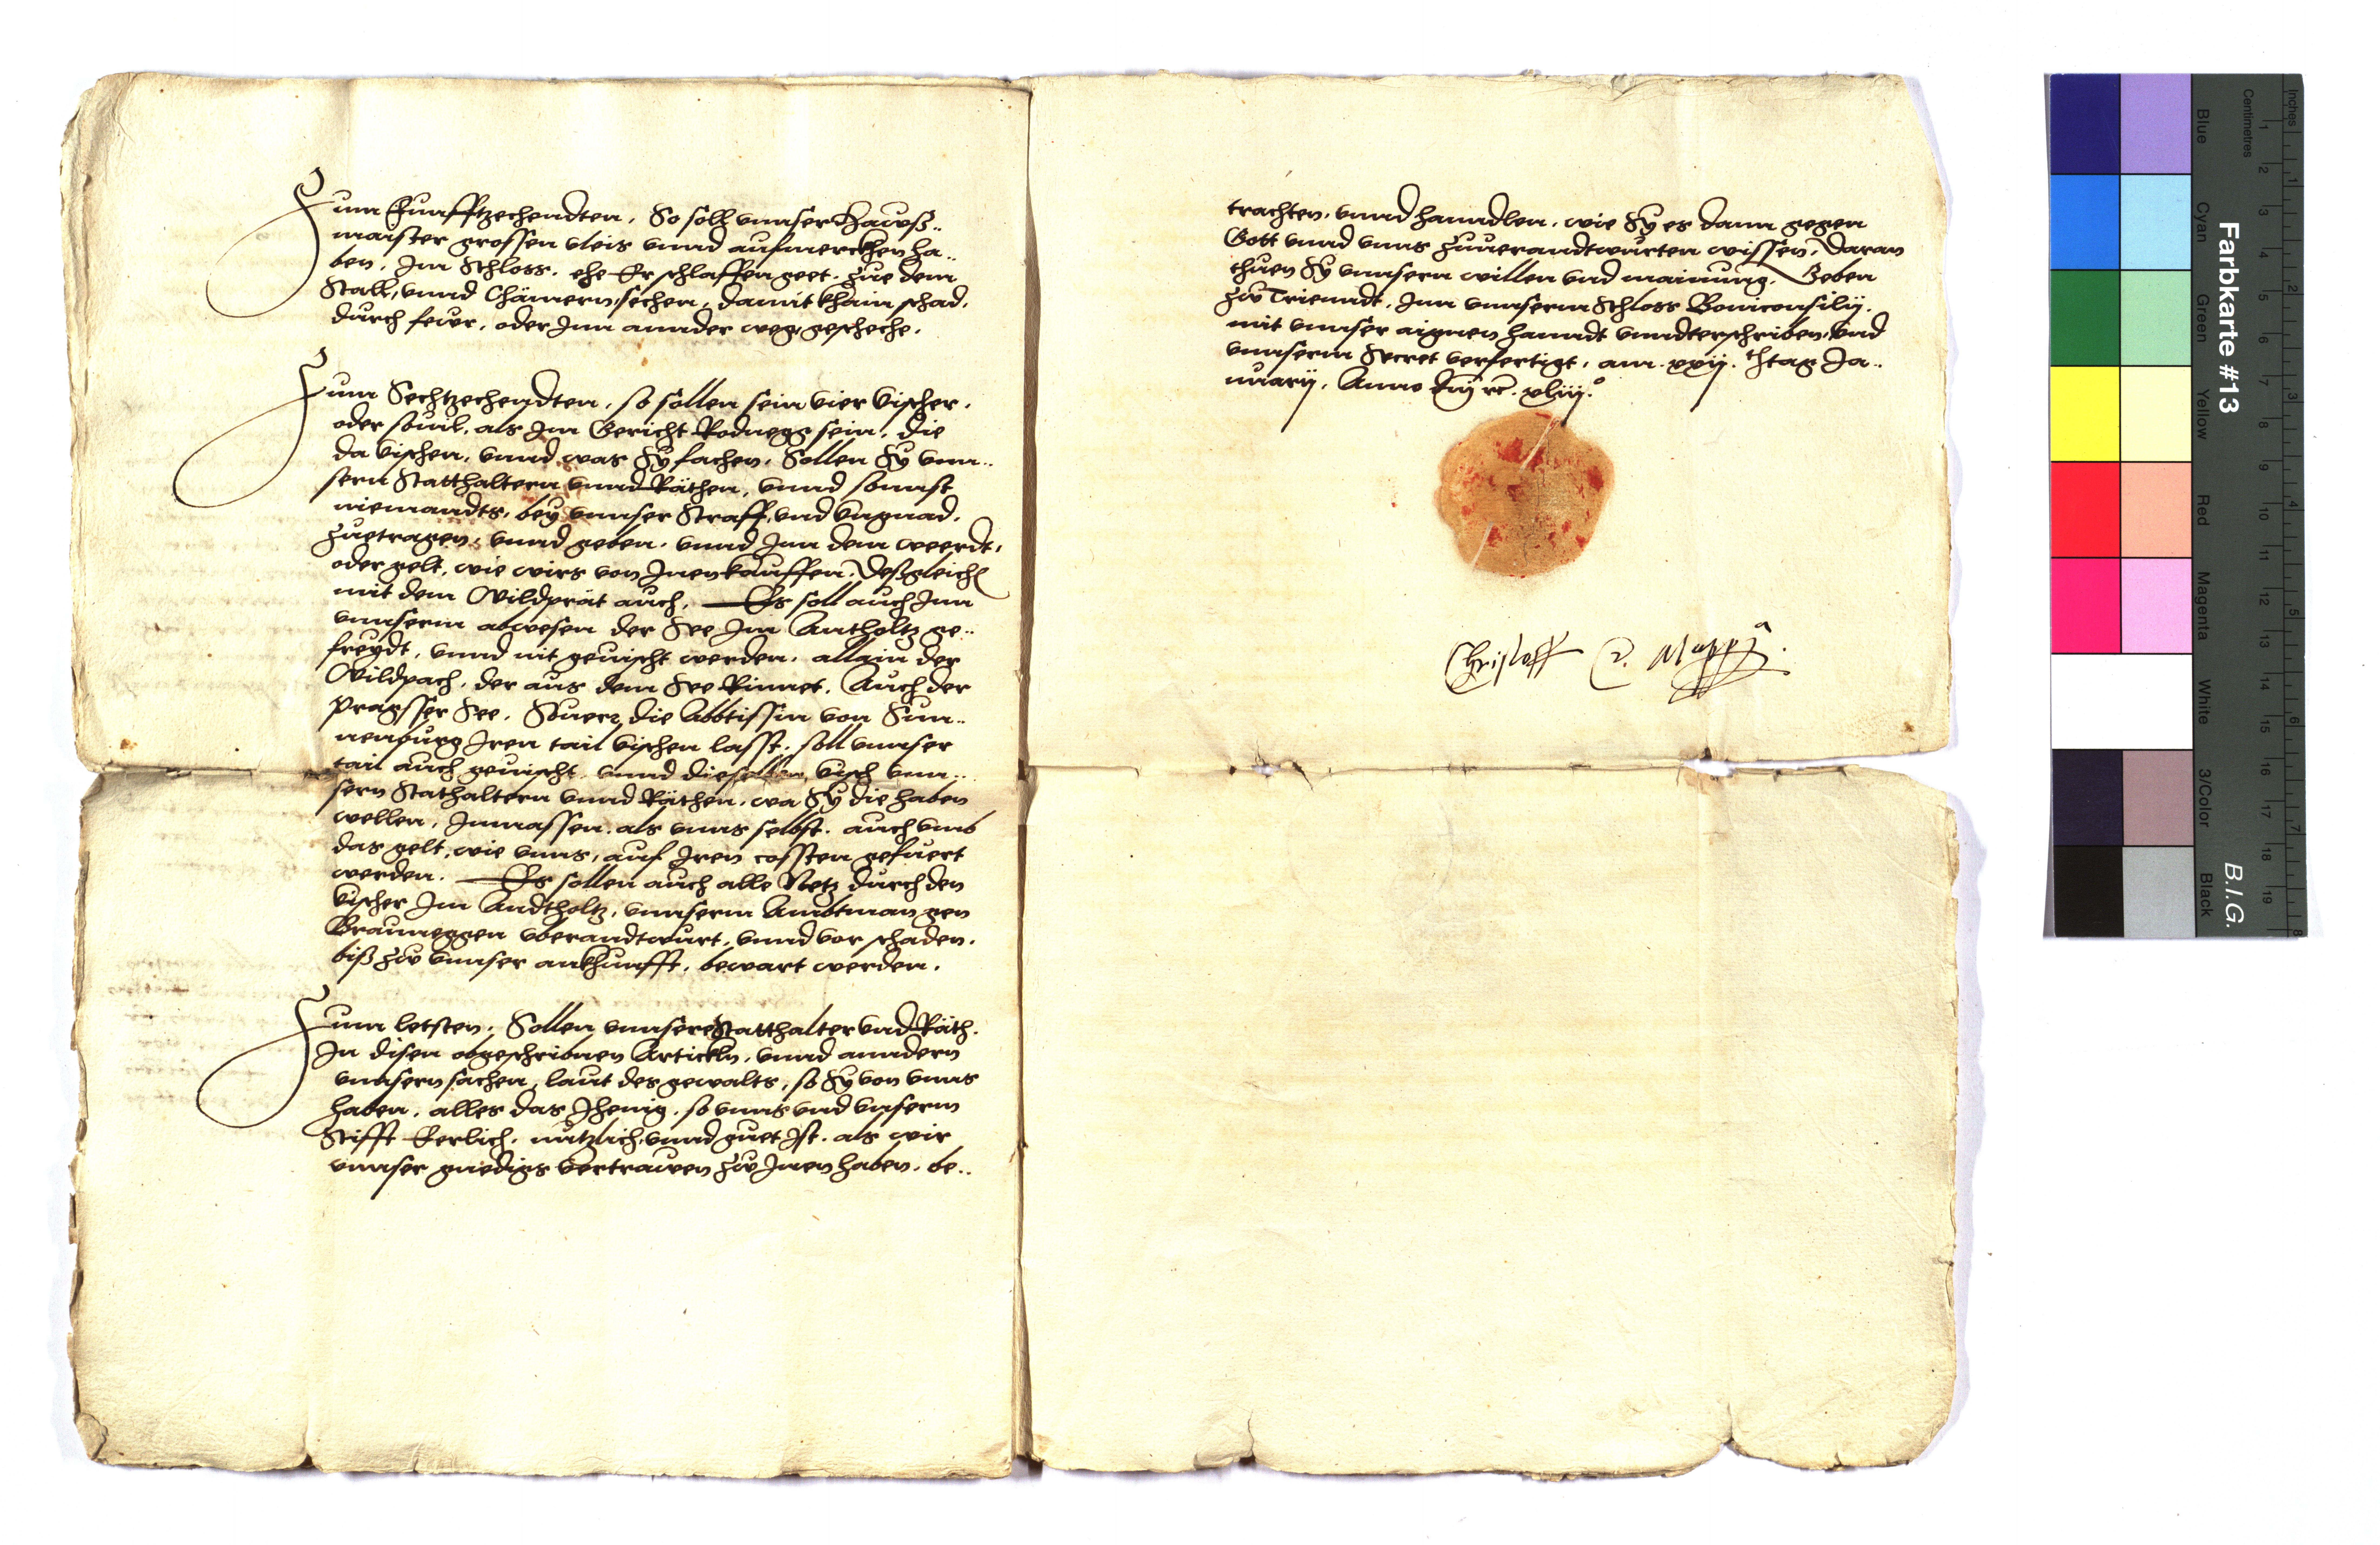 Zum Funfftzechendten. So soll vnnser Hawß..
maister grossen vleis vnnd aufmerckhen ha..
ben. Im Schloss. ehe Er schlaffen geet. Zue dem
Stall, vnnd Chämern, sechen, damit khain schad.
durch fewr. oder Inn annder weg, gescheche.
Zum Sechtzechendten. so sollen sein vier vischer.
oder souil, als Im Gericht Rodnegg sein. die
da vischen, vnnd was Sy fachen. Sollen Sy vnn..
sern Statthaltern vnnd Räthen, vnnd sonnst
niemandts, bey vnnser Straff, vnd vngnad.
Zuetragen, vnnd geben. vnnd Inn dem weerdt,
oder gelt, wie wirs von Inen kauffen. Deßgleich
mit dem Wildprät auch. Es soll auch Inn
vnnserm abwesen der See Im Antholtz ge..
freydt, vnnd nit geuischt werden. allain der
Wildpach. der aus dem See Rinnet. Auch der
Pragsser See. Souer die Abbtissin von Sun..
nenburg Iren tail vischen lasst. soll vnnser
tail auch geuischt vnnd dieselben visch vnn..
sern Stathaltern vnnd Räthen. wa Sy die haben
wellen, Inmassen. als vnns selbst. auch vmb
das gelt, wie vnns, auf Iren cossten gefuert
werden. Es sollen auch alle Netz durch den
vischer Im Andtholtz, vnnserm Ambtman gen
Brauneggen vberandtwurt, vnnd vor schaden.
biß Zw vnnser ankhunfft, bewart werden.
Zum letsten. Sollen vnnsere Statthalter vnd Räth.
In disen obgeschribnen Artickln, vnnd anndern
vnnsern sachen, laut des gewalts, so Sy von vnns
haben, alles das Ihenig. so vnns vnd vnserm
Stifft Eerlich. nutzlich, vnnd guet Ist. als wir
vnnser gnedigs vertrawen Zw Inen haben. be..
trachten. vnnd hanndlen. wie Sy es dann gegen
Gott vnnd vnns Zuuerandtwurten wissen. Daran
thuen Sy vnnsern willen vnd mainung. Geben
Zw Trienndt. Inn vnnserm Schloss Boniconsilij.
mit vnnser aignen hanndt vnndterschriben. vnd
vnnserm Secret verfertigt. am. xxij. tag Ja..
nuarij. Anno xliij.º
Christoff
Farbkarte #13
B.I.G.
Inches
Centimetres
Blue
Cyan
Green
Yellow
Red
Magenta
White
3/Color
Black
1 2 3 4 5 6 7 8 9 10 11 12 13 14 15 16 17 18 19
1 2 3 4 5 6 7 8